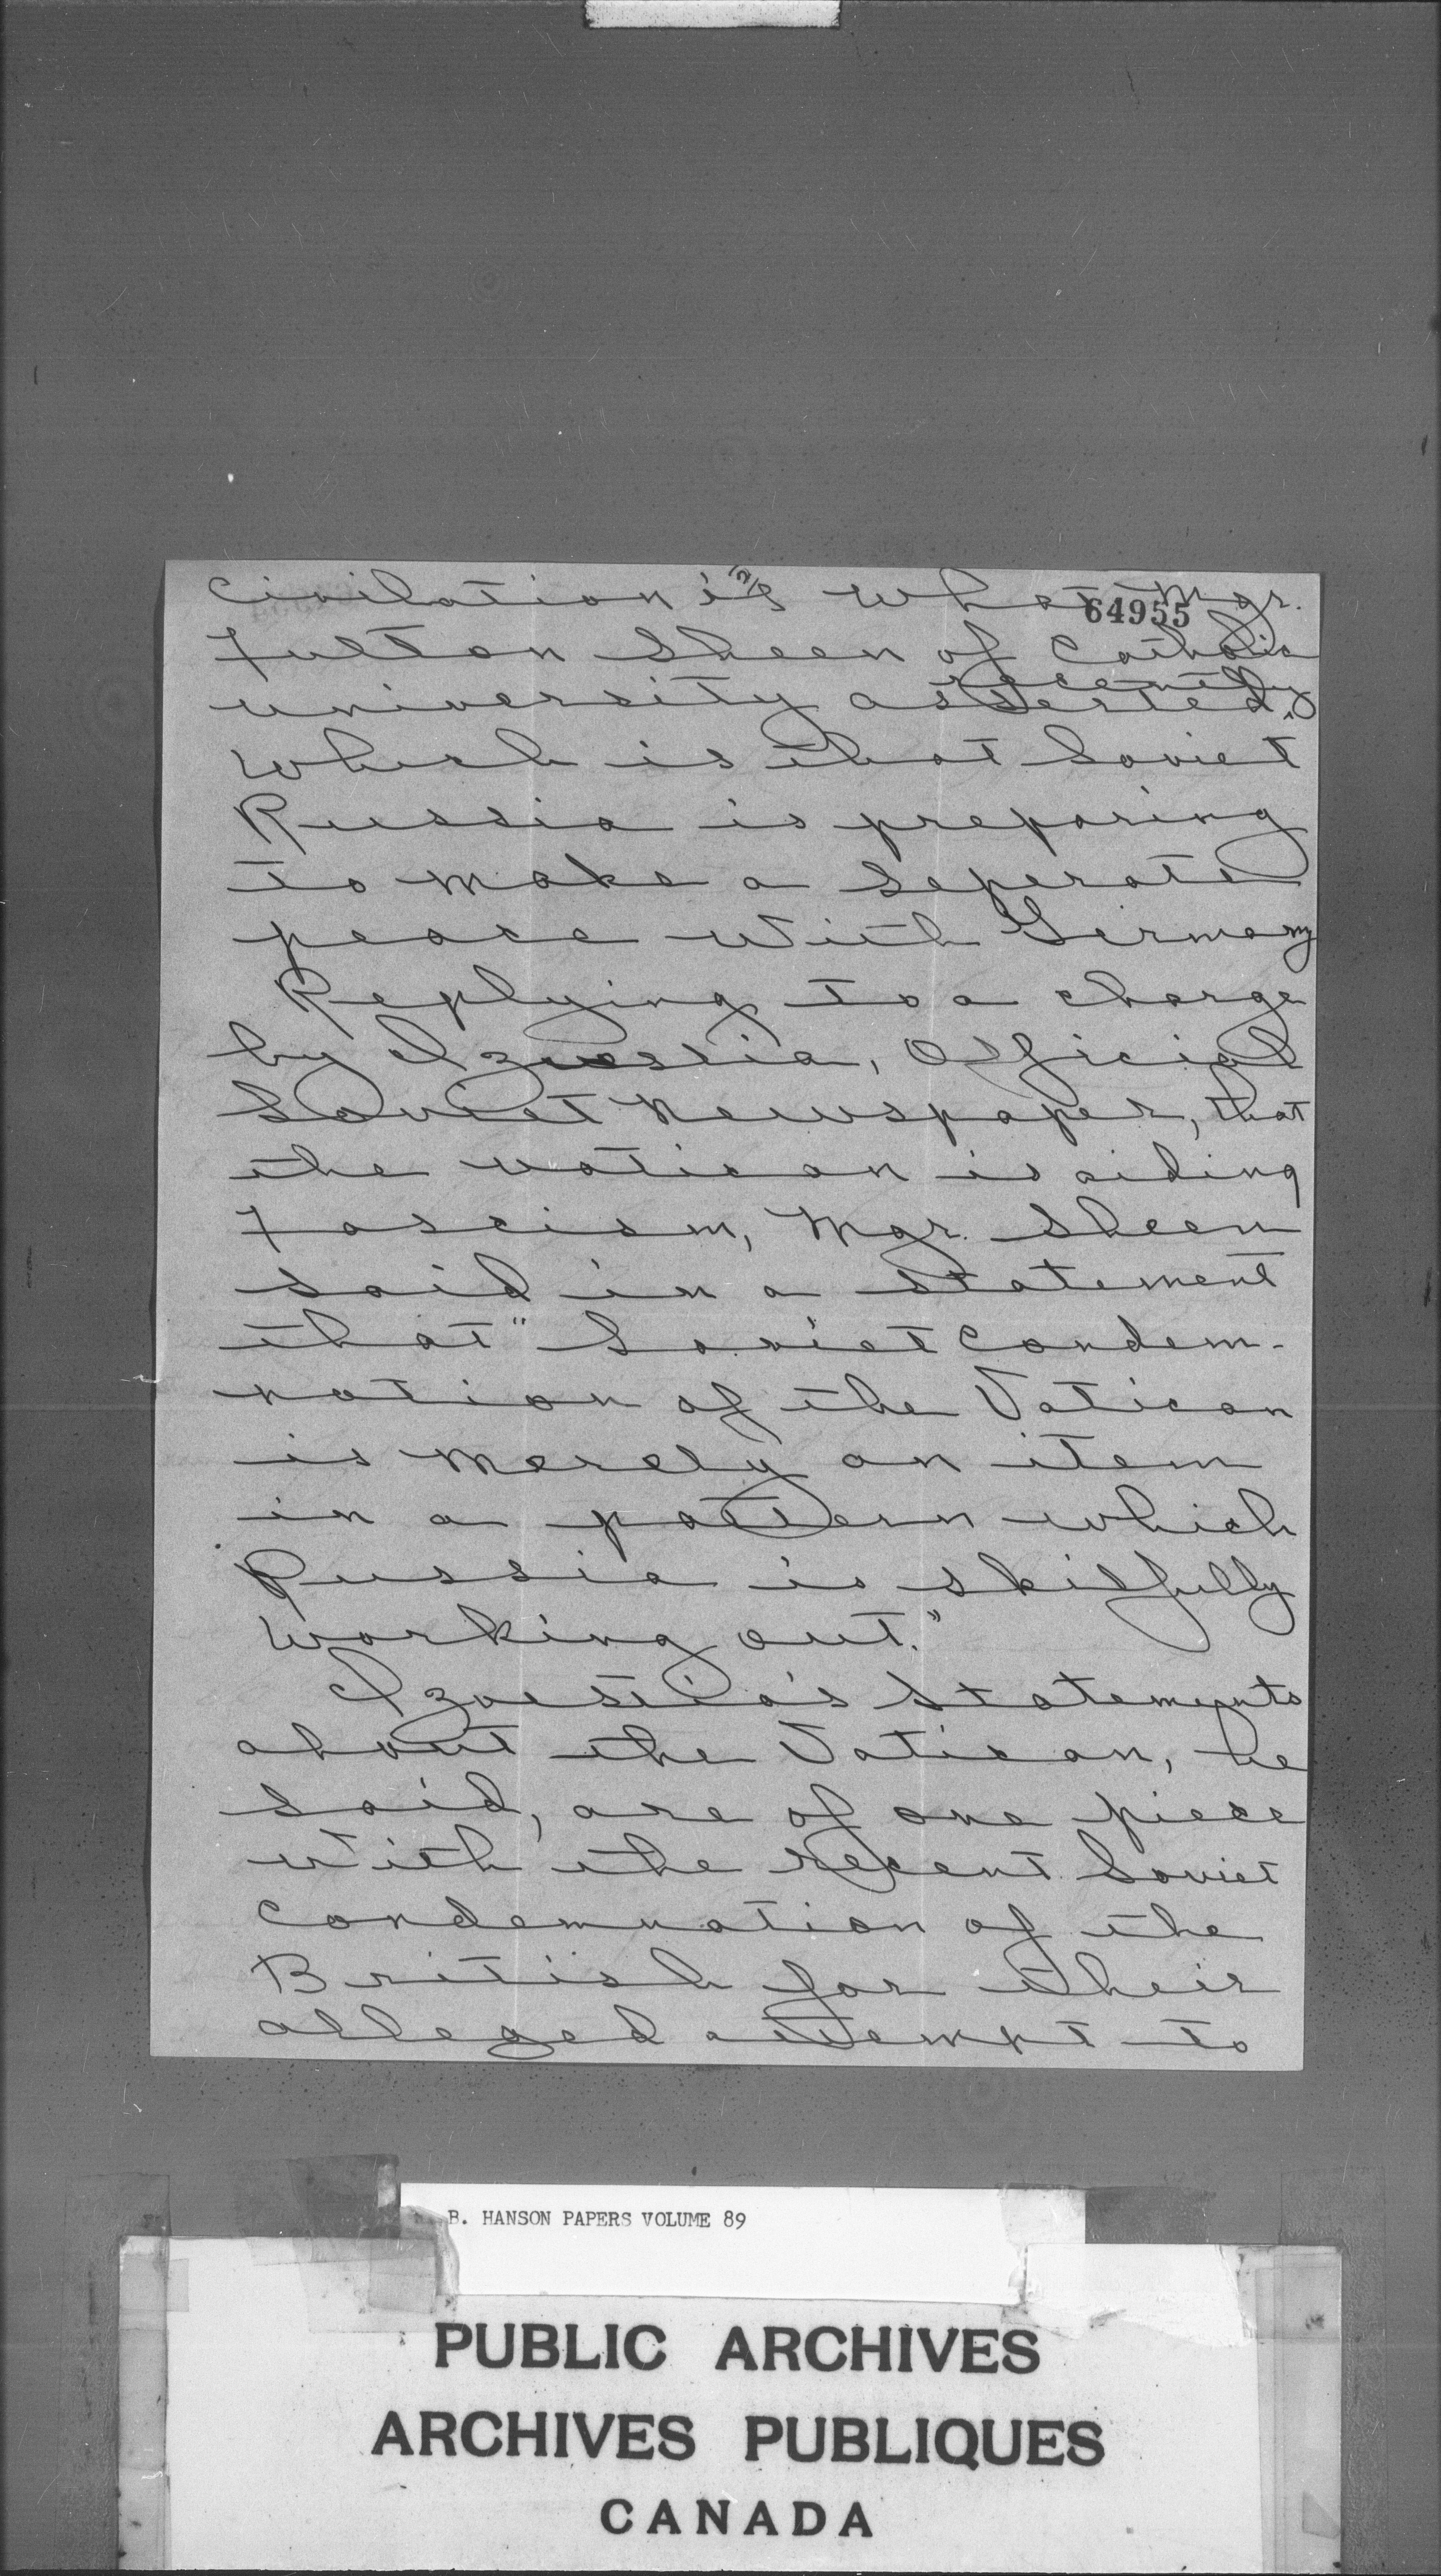 Civilation is what Mgr.
64955
Fulton Sheen of Catholic
recently
university asserted,
which is that Soviet
Russia is preparing
to make a seperate
peace with Germany
Replying to a charge
by Izvestia, Official
Soviet Newspaper, that
the vatican is aiding
Fascism, Mgr. Sheen
said in a statement
that "Soviet Condem-
nation of the Vatican
is merely an item
in a pattern which
Russia is skilfully
working out."
Izvestia's statements
about the Vatican, he
said, are of one piece
with the recent Soviet
Condemnation of the
British for their
alleged attempt to
B. HANSON PAPERS VOLUME 89
PUBLIC ARCHIVES
ARCHIVES PUBLIQUES
CANADA